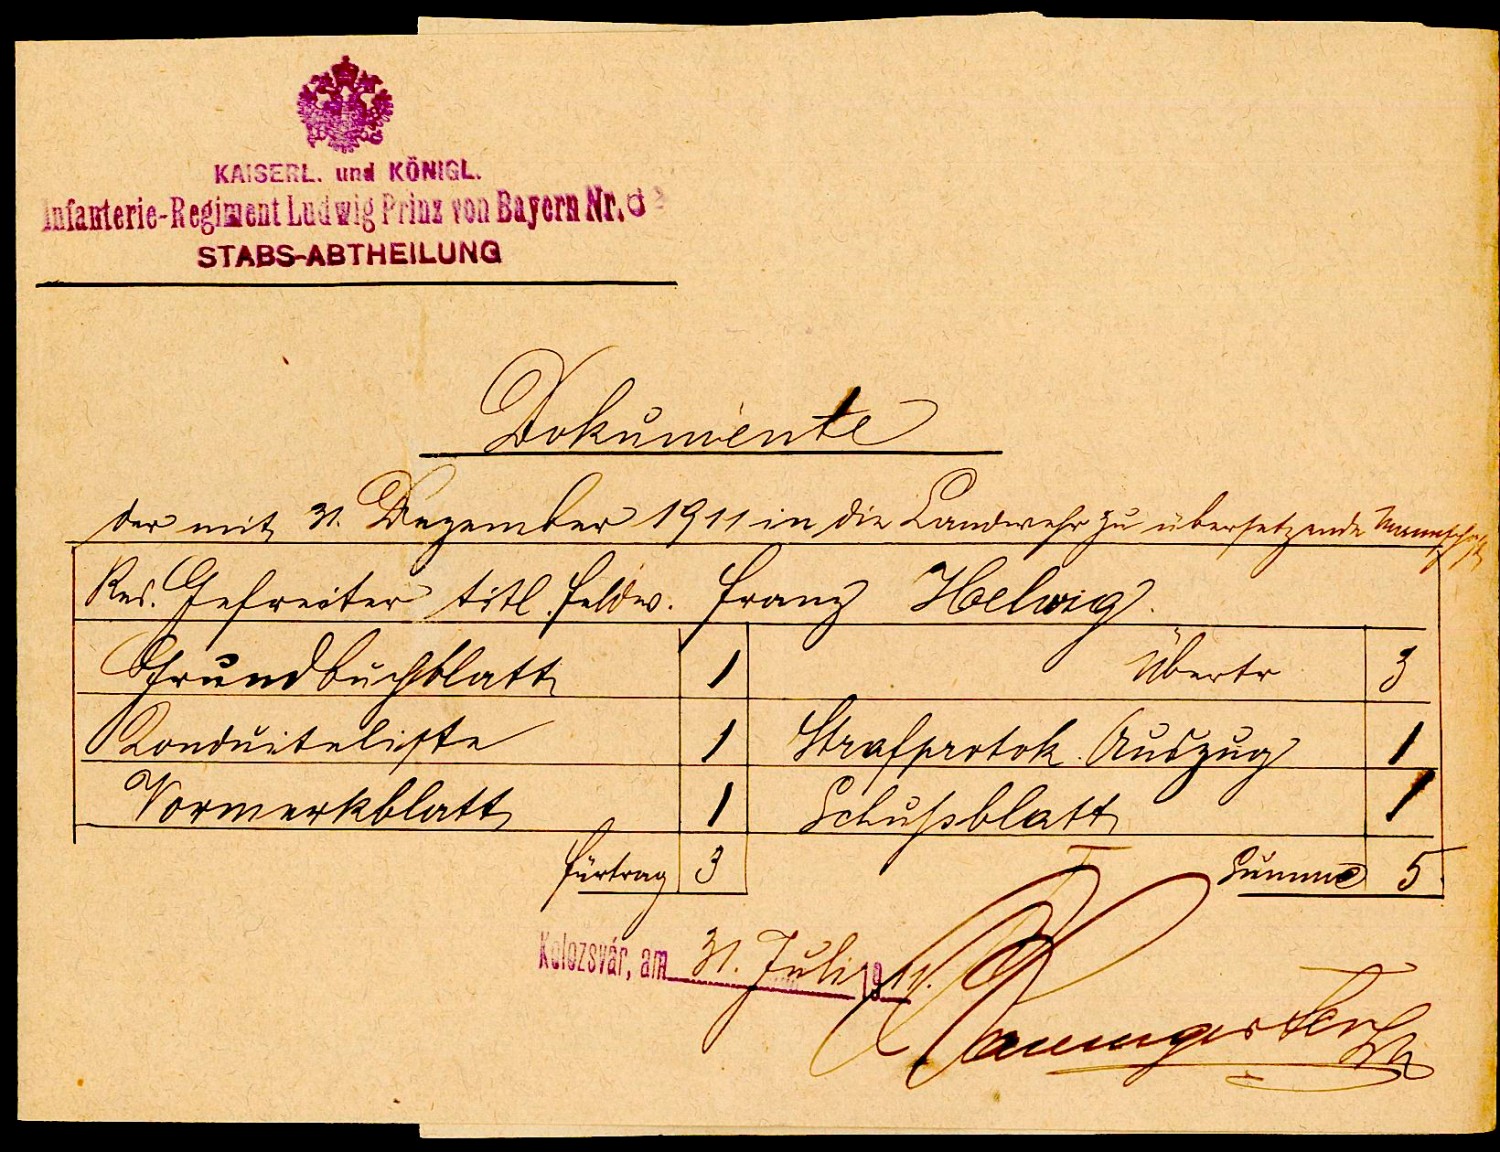 KAISERL. und KÖNIGL.
Infanterie-Regiment Ludwig Prinz von Bayern Nr. 62
STABS-ABTHEILUNG
Dokumente
der mit 31. Dezember 1911 in die Landwehr zu übersetzende Mannschaft
Res. Gefreiter titl. Feldw. Franz Helwig.
Grundbuchblatt 1 Übertr 3
Konduiteliste 1 Strafprotok. Auszug 1
Vormerkblatt 1 Schußblatt 1
Fürtrag 3 Summe 5
Kolozsvár, am 31. Juli 1911.